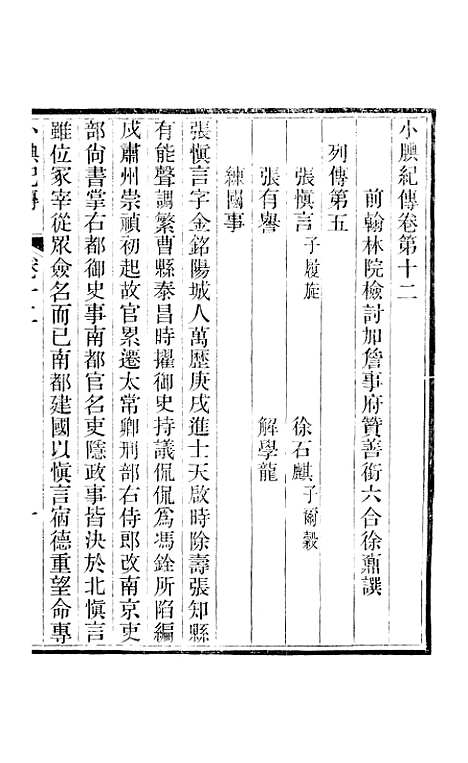 小腆紀傳卷第十二
前翰林院檢討加詹事府贊善銜六合徐鼒譔
列傳第五
張愼言子履旋　徐石麒子爾穀
張有譽　解學龍
練國事
張愼言字金銘陽城人萬歷庚戌進士天啟時除壽張知縣
有能聲調繁曹縣泰昌時擢御史持議侃侃爲馮銓所陷編
戍肅州崇禎初起故官累遷太常卿刑部右侍郎改南京吏
部尙書掌右都御史事南都官名吏隱政事皆決於北愼言
雖位冢宰從眾僉名而已南都建國以愼言宿德重望命專
小腆紀傳　卷十二　一